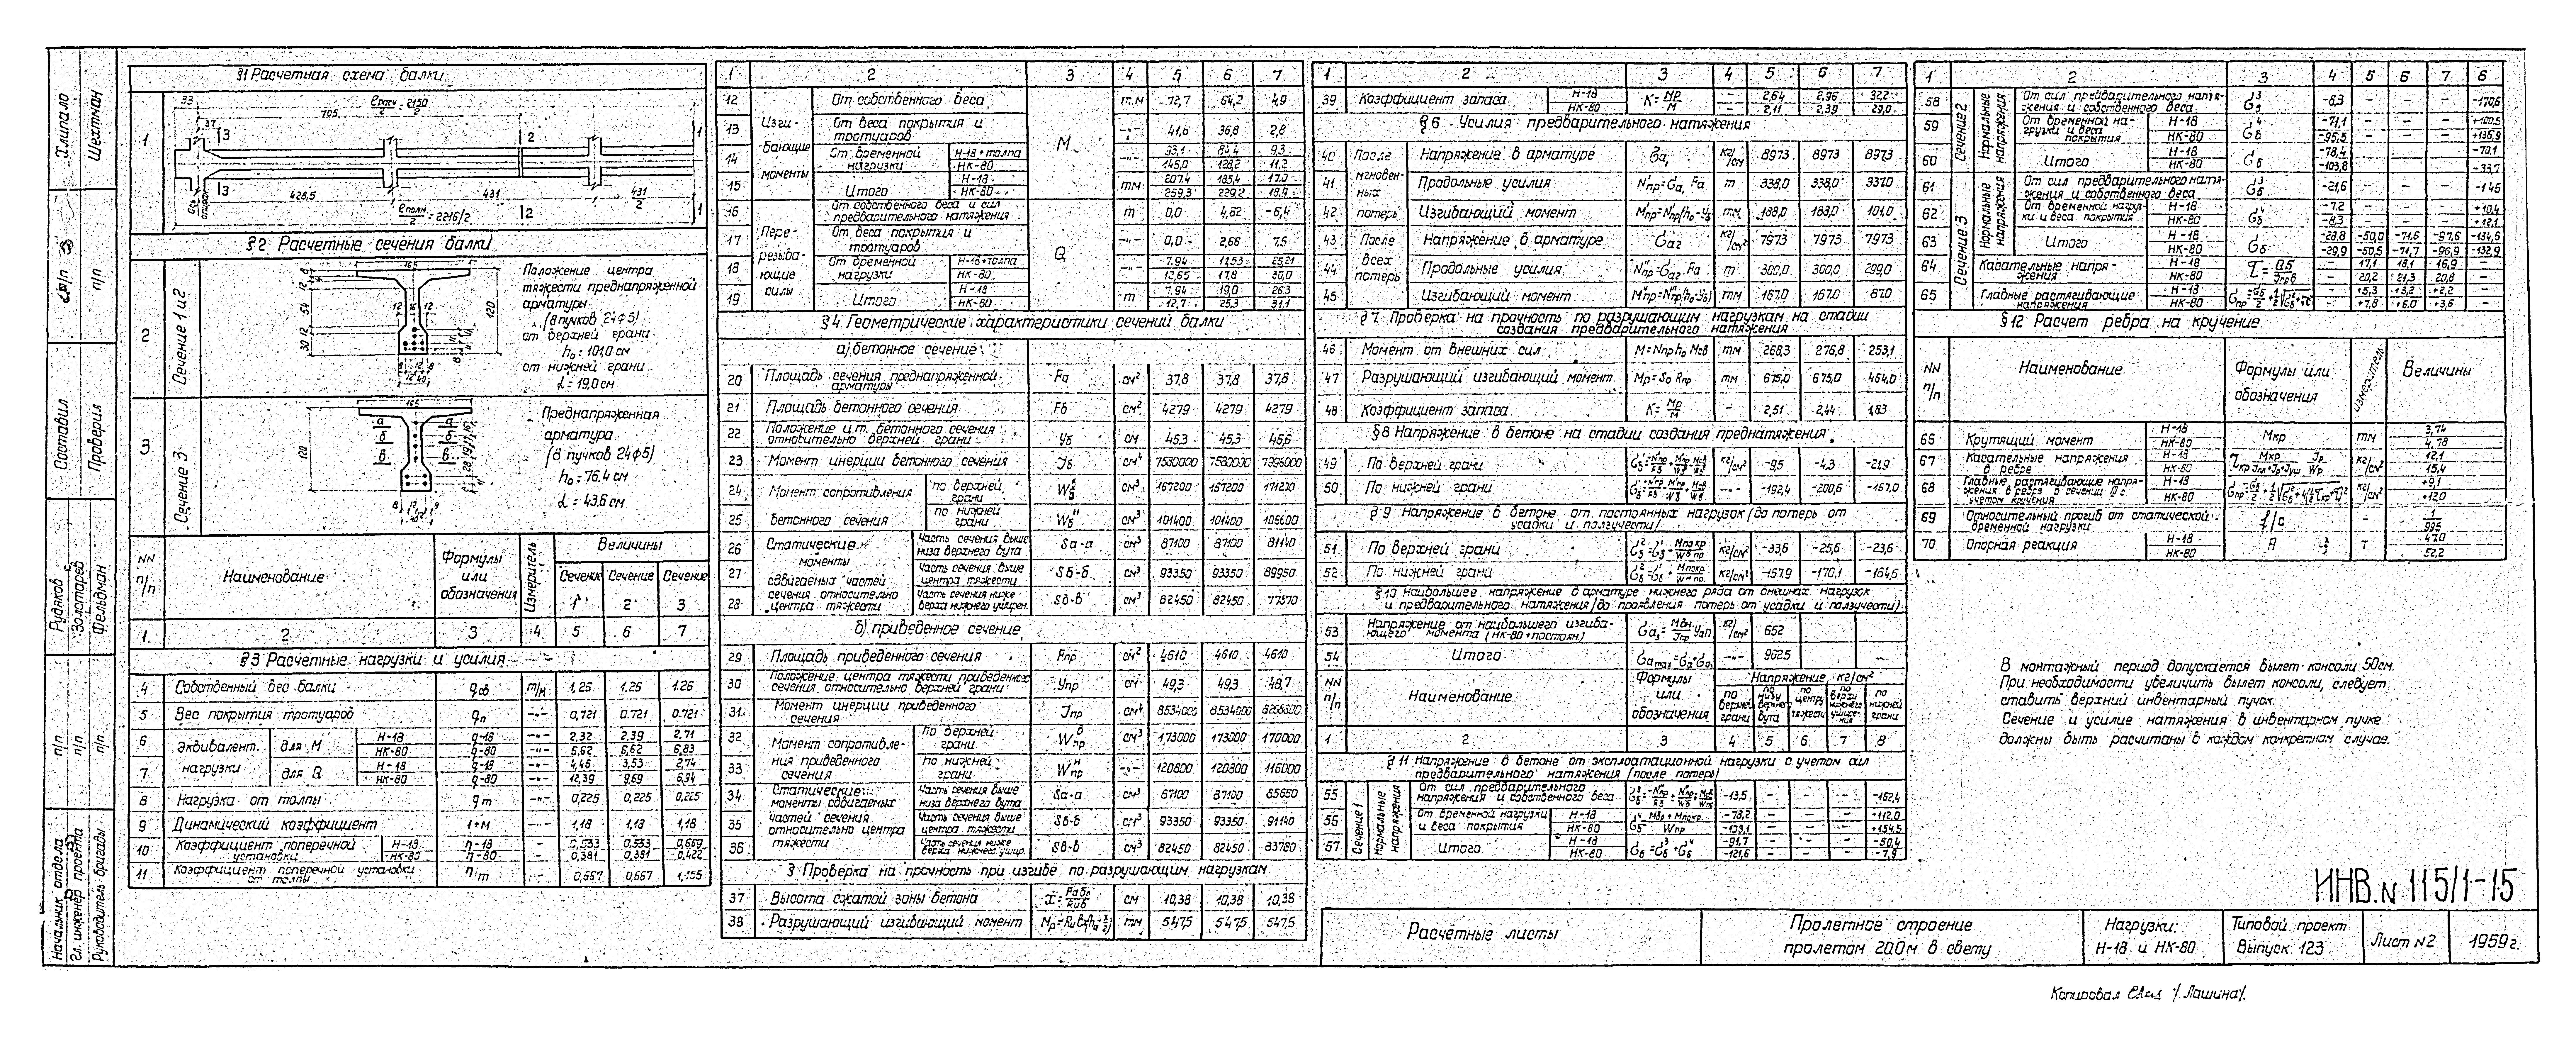 §1 Расчетная схема балки
1
33
ℓрасч/2 = 2150/2
705
37
3
2
1
3
428,5
431
2
431/2
1
Ось опиран.
ℓполн/2 = 2216/2
§2 Расчетные сечения балки
2
Сечение 1 и 2
Положение центра
тяжести преднапряженной
арматуры
(8 пучков 24ф5)
от верхней грани
h₀ = 101,0 см
от нижней грани
d = 19,0 см
120
3
Сечение 3
Преднапряженная
арматура
(8 пучков 24ф5)
h₀ = 76.4 см
d = 43.6 см
120
NN п/п Наименование Формулы или обозначения Измеритель Величины
Сечение 1 Сечение 2 Сечение 3
1 2 3 4 5 6 7
§3 Расчетные нагрузки и усилия
4 Собственный вес балки qсв т/м 1,26 1.26 1.26
5 Вес покрытия тротуаров qп -"- 0,721 0.721 0.721
6 Эквивалент. нагрузки для М Н-18 q-18 -"- 2,32 2,39 2,71
НК-80 q-80 -"- 6,62 6,62 6,83
7 для Q Н-18 q-18 -"- 4,46 3,53 2,74
НК-80 q-80 -"- 12,39 9,69 6,94
8 Нагрузка от толпы qт -"- 0,225 0,225 0,225
9 Динамический коэффициент 1+М -"- 1,18 1,18 1,18
10 Коэффициент поперечной установки Н-18 η-18 - 0,533 0,533 0,669
НК-80 η-80 - 0,381 0,381 0,422
11 Коэффициент поперечной установки от толпы ηт - 0,667 0,667 1,155
1 2 3 4 5 6 7
12 Изгибающие моменты От собственного веса М т.м 72,7 64,2 4,9
13 От веса покрытия и тротуаров -"- 41,6 36,8 2,8
14 От временной нагрузки Н-18+толпа -"- 93,1 84,4 9,3
НК-80 145,0 128,2 11,2
15 Итого Н-18 тм 207,4 185,4 17,0
НК-80 259,3 229,2 18,9
16 Перерезывающие силы От собственного веса и сил предварительного натяжения Q т 0,0 4,62 -6,4
17 От веса покрытия и тротуаров -"- 0,0 2,66 7,5
18 От временной нагрузки Н-18+толпа -"- 7,94 11,53 25,21
НК-80 12,65 17,8 30,0
19 Итого Н-18 т 7,94 19,0 26,3
НК-80 12,7 25,3 31,1
§4 Геометрические характеристики сечений балки
а) бетонное сечение
20 Площадь сечения преднапряженной арматуры Fа см² 37,8 37,8 37,8
21 Площадь бетонного сечения Fб см² 4279 4279 4279
22 Положение ц.т. бетонного сечения относительно верхней грани Уб см 45,3 45,3 46,6
23 Момент инерции бетонного сечения Jб см⁴ 7580000 7580000 7996000
24 Момент сопротивления бетонного сечения по верхней грани Wб^в см³ 167200 167200 171200
25 по нижней грани Wб^н см³ 101400 101400 108600
26 Статические моменты сдвигаемых частей сечения относительно центра тяжести Часть сечения выше низа верхнего вута Sа-а см³ 87100 87100 81140
27 Часть сечения выше центра тяжести Sб-б см³ 93350 93350 89950
28 Часть сечения ниже верха нижнего уширен. Sв-в см³ 82450 82450 77570
б) приведенное сечение
29 Площадь приведенного сечения Fпр см² 4610 4610 4610
30 Положение центра тяжести приведенного сечения относительно верхней грани Упр см 49,3 49,3 48,7
31 Момент инерции приведенного сечения Jпр см⁴ 8534000 8534000 8268300
32 Момент сопротивления приведенного сечения По верхней грани Wпр^в см³ 173000 173000 170000
33 По нижней грани Wпр^н -"- 120800 120800 116000
34 Статические моменты сдвигаемых частей сечения относительно центра тяжести Часть сечения выше низа верхнего вута Sа-а см³ 87100 87100 85650
35 Часть сечения выше центра тяжести Sб-б см³ 93350 93350 91140
36 Часть сечения ниже верха нижнего ушир. Sв-в см³ 82450 82450 83780
§ Проверка на прочность при изгибе по разрушающим нагрузкам
37 Высота сжатой зоны бетона см 10,38 10,38 10,38
38 Разрушающий изгибающий момент тм 547,5 547,5 547,5
1 2 3 4 5 6 7
39 Коэффициент запаса Н-18 К = Мр/М - 2,64 2,96 32,2
НК-80 - 2,11 2,39 29,0
§6 Усилия предварительного натяжения
40 После мгновенных потерь Напряжение в арматуре σа₁ кг/см 8973 8973 8973
41 Продольные усилия N'пр=σа₁Fа т 338,0 338,0 337,0
42 Изгибающий момент М'пр=N'пр(h₀-Уб) тм 188,0 188,0 101,0
43 После всех потерь Напряжение в арматуре σа₂ кг/см² 7973 7973 7973
44 Продольные усилия N"пр=σа₂Fа т 300,0 300,0 299,0
45 Изгибающий момент М"пр=N"пр(h₀-Уб) тм 167.0 167.0 87.0
§7 Проверка на прочность по разрушающим нагрузкам на стадии
создания предварительного натяжения
46 Момент от внешних сил М=Nпр h₀ Мсв тм 268,3 276,8 253,1
47 Разрушающий изгибающий момент Мр=S₀ Rпр тм 675,0 675,0 464,0
48 Коэффициент запаса К=Мр/М - 2,51 2,44 1,83
§8 Напряжение в бетоне на стадии создания преднатяжения
49 По верхней грани кг/см² -9,5 -4,3 -21,9
50 По нижней грани -"- -192,4 -200,6 -167,0
§9 Напряжение в бетоне от постоянных нагрузок (до потерь от
усадки и ползучести)
51 По верхней грани кг/см² -33,6 -25,6 -23,6
52 По нижней грани кг/см² -157,9 -170,1 -164,6
§10 Наибольшее напряжение в арматуре нижнего ряда от внешних нагрузок
и предварительного натяжения (до проявления потерь от усадки и ползучести)
53 Напряжение от наибольшего изгибающего момента (НК-80+постоян) кг/см² 652
54 Итого -"- 9625
NN п/п Наименование Формулы или обозначения Напряжение, кг/см²
по верхней грани по низу верхнего вута по центру тяжести по верху нижнего уширения по нижней грани
1 2 3 4 5 6 7 8
§11 Напряжение в бетоне от эксплоатационной нагрузки с учетом сил
предварительного натяжения (после потерь)
55 Сечение 1 Нормальные напряжения От сил предварительного напряжения и собственного веса -13,5 - - - -162,4
56 От временной нагрузки и веса покрытия Н-18 -78,2 - - - +112,0
НК-80 -108,1 - - - +154,5
57 Итого Н-18 -91,7 - - - -50,4
НК-80 -121,6 - - - -7,9
1 2 3 4 5 6 7 8
58 Сечение 2 Нормальные напряжения От сил предварительного напряжения и собственного веса σб³ -8,3 - - - -170,6
59 От временной нагрузки и веса покрытия Н-18 σб⁴ -71,1 - - - +100,5
НК-80 -95,5 - - - +136,9
60 Итого Н-18 σб -78,4 - - - -70,1
НК-80 -103,8 - - - -33,7
61 Сечение 3 Нормальные напряжения От сил предварительного напряжения и собственного веса σб³ -21,6 - - - -145
62 От временной нагрузки и веса покрытия Н-18 σб⁴ -7,2 - - - +10,4
НК-80 -8,3 - - - +12,1
63 Итого Н-18 σб -28,8 -50,0 -74,6 -97,6 -134,6
НК-80 -29,9 -50,5 -74,7 -96,9 -132,9
64 Касательные напряжения Н-18 τ = QS/Jпрв - 17,1 18,1 16,9 -
НК-80 - 20,2 21,3 20,8 -
65 Главные растягивающие напряжения Н-18 - +5,3 +3,2 +2,2 -
НК-80 - +7,8 +6,0 +3,6 -
§12 Расчет ребра на кручение
NN п/п Наименование Формулы или обозначения Измеритель Величины
66 Крутящий момент Н-18 Мкр тм 3,74
НК-80 4,78
67 Касательные напряжения в ребре Н-18 кг/см² 12,1
НК-80 15,4
68 Главные растягивающие напряжения в ребре в сечении с учетом кручения Н-18 кг/см² +9,1
НК-80 +12,0
69 Относительный прогиб от статической временной нагрузки f/ℓ - 1/935
70 Опорная реакция Н-18 А т 47,0
НК-80 52,2
В монтажный период допускается вылет консоли 50см.
При необходимости увеличить вылет консоли, следует
ставить верхний инвентарный пучок.
Сечение и усилие натяжения в инвентарном пучке
должны быть расчитаны в каждом конкретном случае.
ИНВ.N 115/1-15
Расчётные листы
Пролетное строение
пролетом 20.0м в свету
Нагрузки:
Н-18 и НК-80
Типовой проект
Выпуск 123
Лист N2
1959г.
Копировал /Лашина/
Начальник отдела
Гл. инженер проекта
Руководитель бригады
п/п
п/п
п/п
Рудяков
Золотарев
Фельдман
Составил
Проверил
п/п
п/п
Хлипало
Шехтман